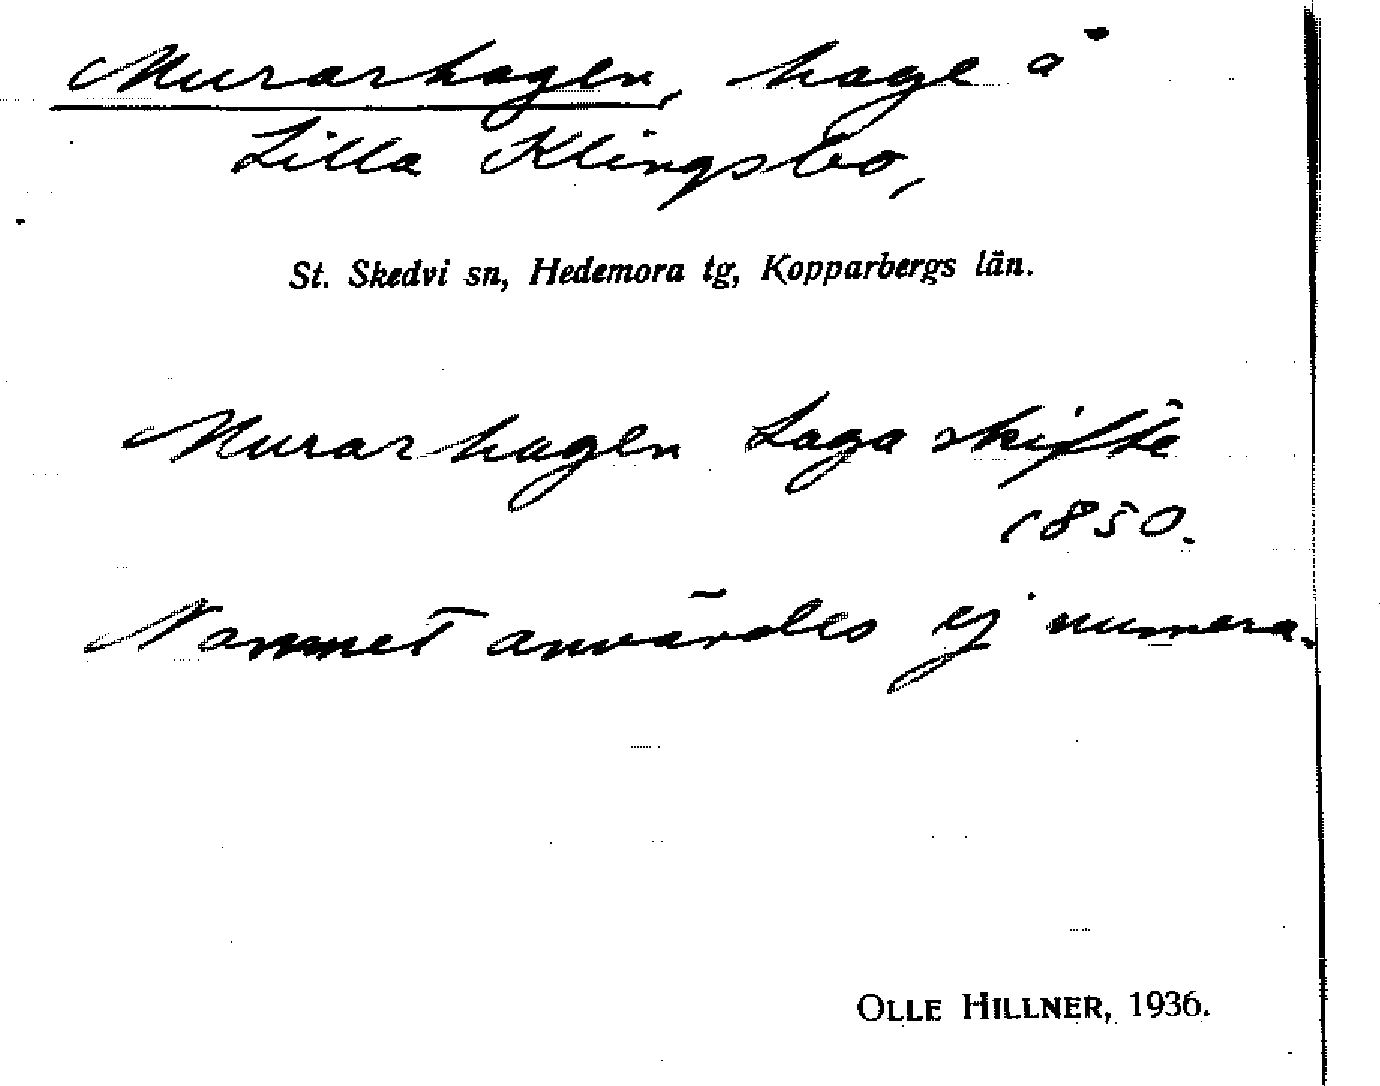 Murarhagen, hage å
Lilla Klingsbo,
St. Skedvi sn, Hedemora tg, Kopparbergs län.
Murarhagen Laga skifte
1850.
Namnet användes ej numera.
OLLE HILLNER, 1936.